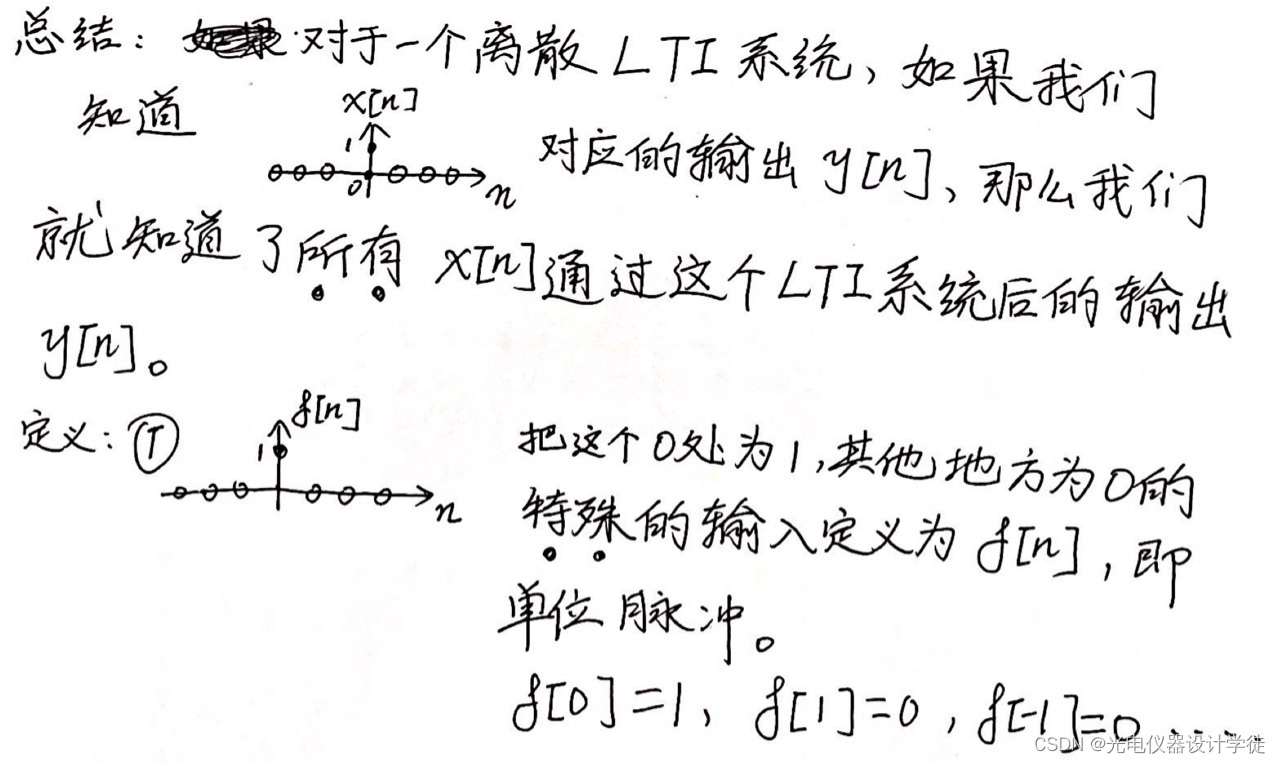 总结：对于一个离散LTI系统，如果我们
知道 x[n] 1 0 n 对应的输出y[n]，那么我们
就知道了所有x[n]通过这个LTI系统后的输出
y[n]。
定义：① δ[n] 1 n 把这个0处为1，其他地方为0的
特殊的输入定义为δ[n]，即
单位脉冲。
δ[0]=1，δ[1]=0，δ[-1]=0 ...
CSDN @光电仪器设计学徒